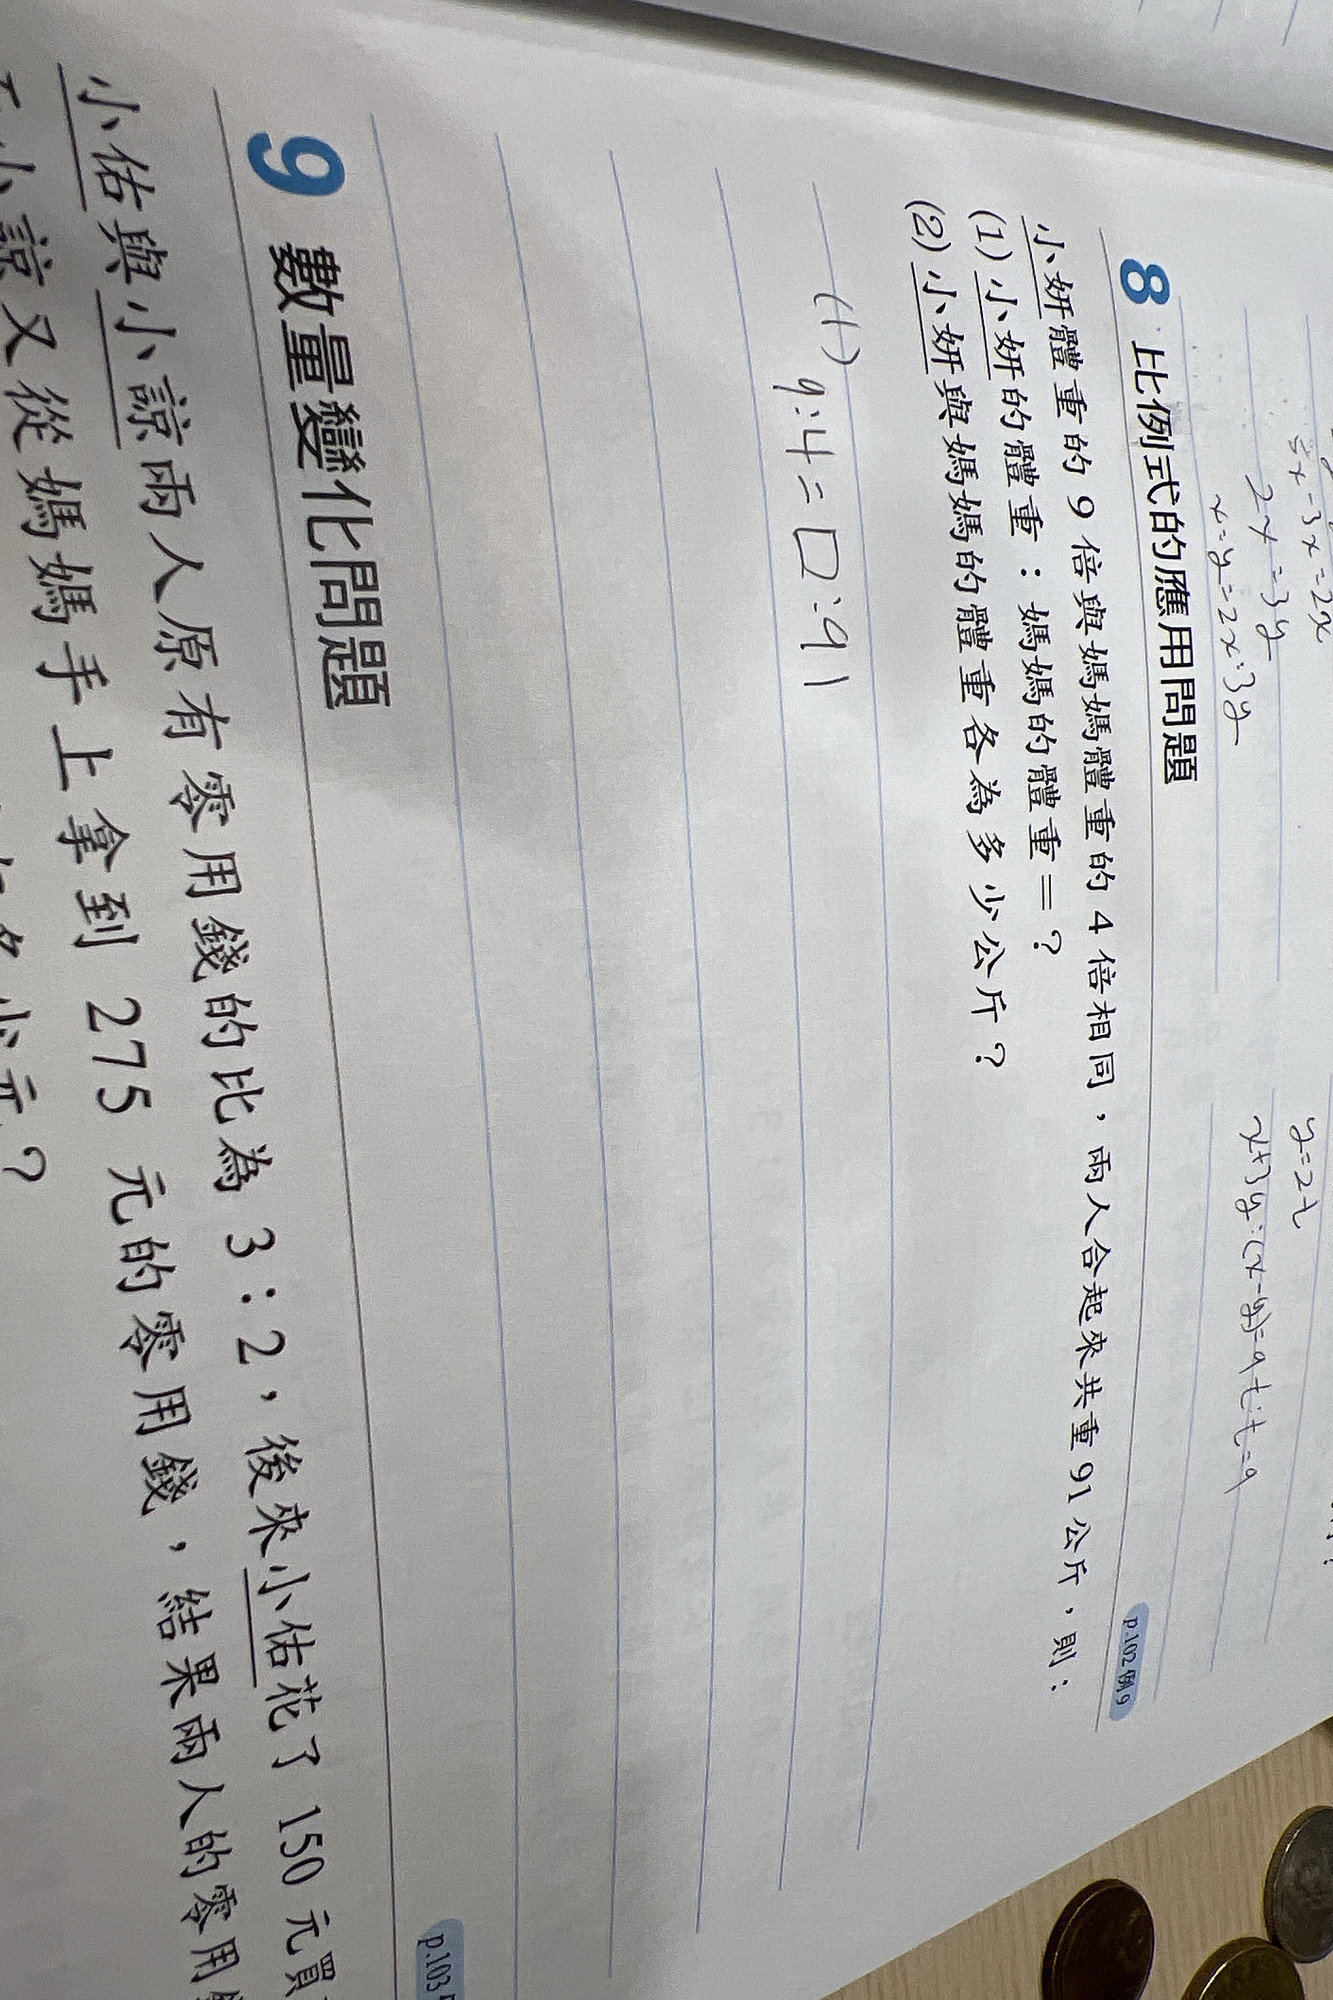 5x-3x=2x
2x=3y
x=y=2x:3y
y=2t
x+3y:(x-y)=9t:t=9
8 比例式的應用問題 p.102 例9
小妍體重的 9 倍與媽媽體重的 4 倍相同,兩人合起來共重 91 公斤,則:
(1) 小妍的體重:媽媽的體重=?
(2) 小妍與媽媽的體重各為多少公斤?
(1)
9:4=□:91
9 數量變化問題 p.103
小佑與小諒兩人原有零用錢的比為 3:2,後來小佑花了 150 元買
小諒又從媽媽手上拿到 275 元的零用錢,結果兩人的零用
元?